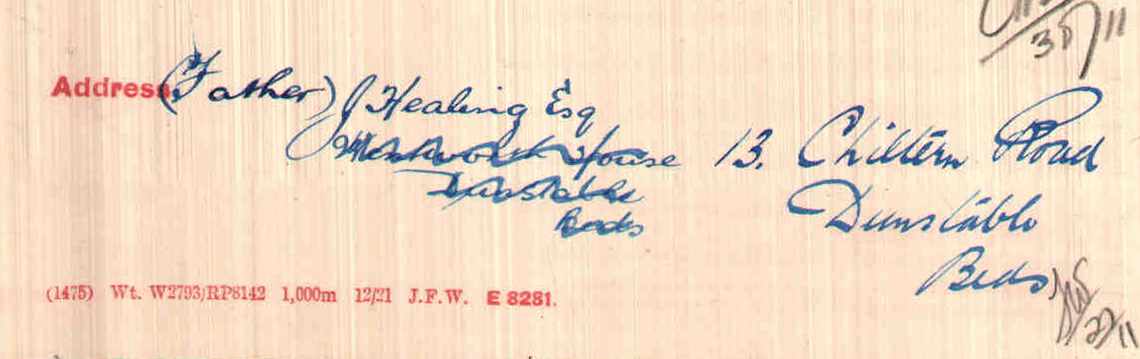 Address. (Father) J Healing Esq
House
Dunstable
Beds
13. Chiltern Road
Dunstable
Beds
(1475) Wt. W2793/RP8142 1,000m 12/21 J.F.W. E 8281.
30/11
27/11